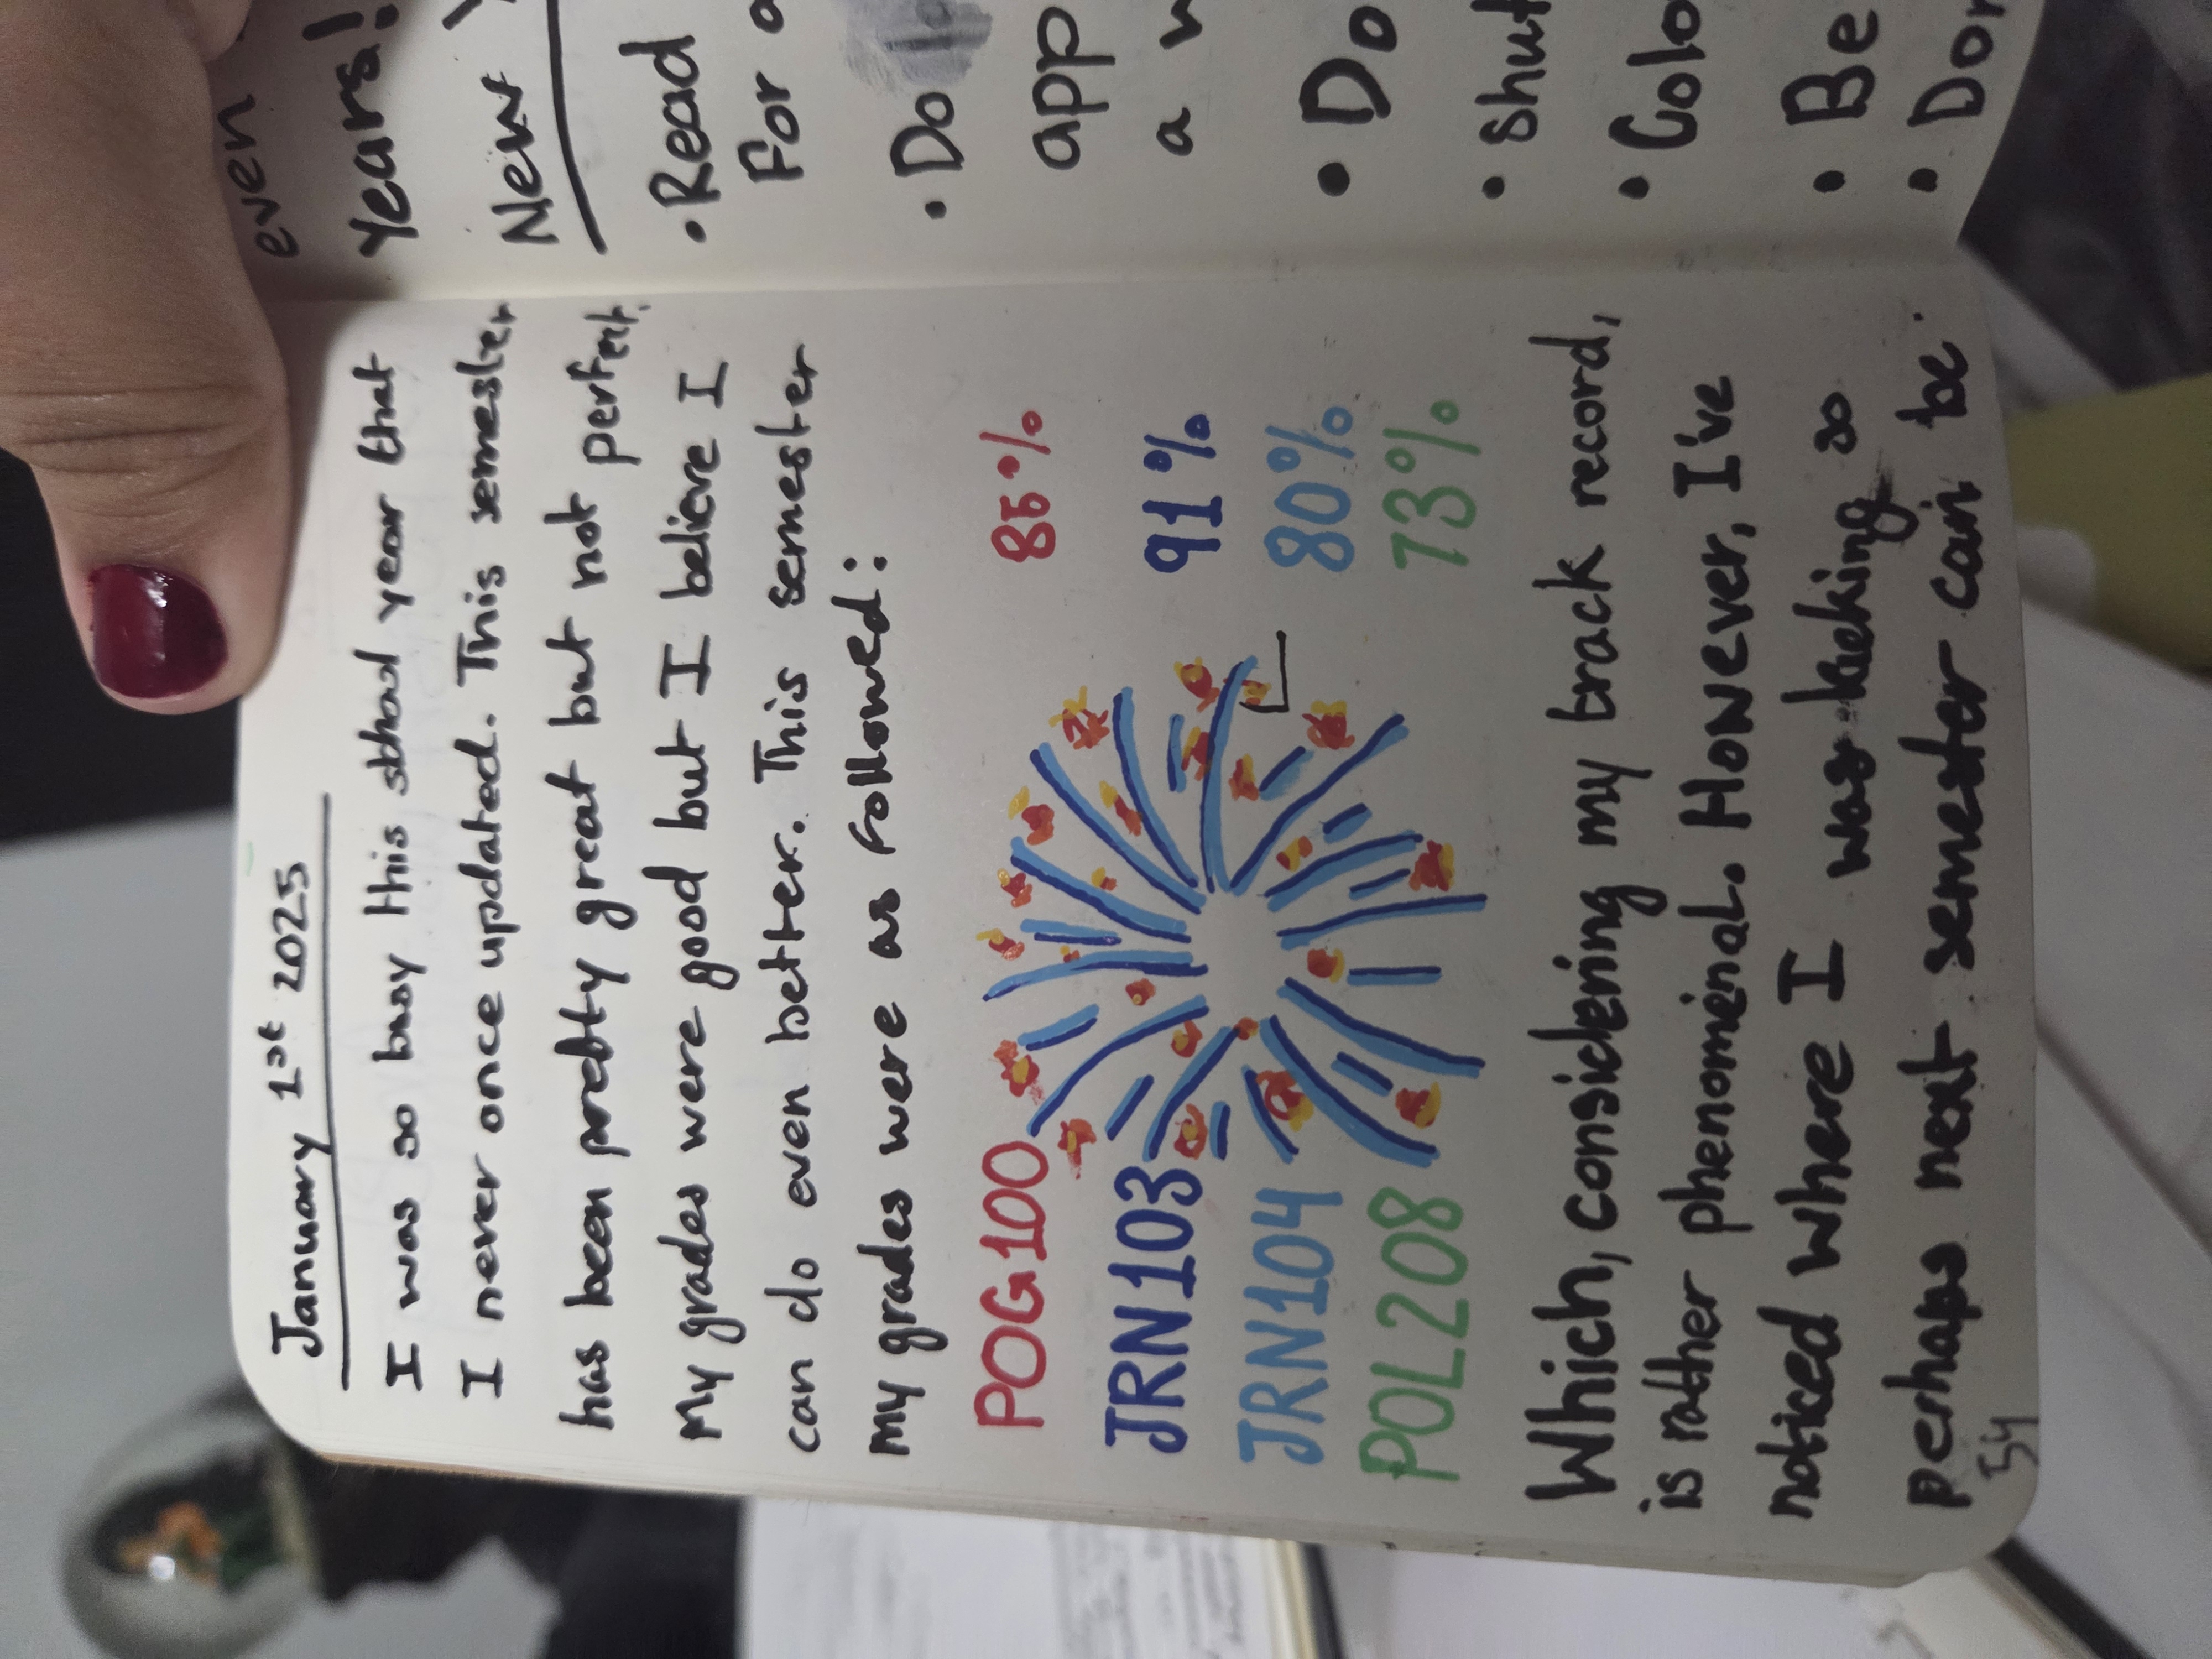 January 1st 2025
I was so busy this school year that
I never once updated. This semester
has been pretty great but not perfect.
My grades were good but I believe I
can do even better. This semester
my grades were as followed:
POG100 85%
JRN103 91%
JRN104 80%
POL208 73%
Which, considering my track record,
is rather phenomenal. However, I've
noticed where I was lacking so
perhaps next semester can be.
54
even
Years!
New Y
• Read
For a
• Do
app
a w
• Do
• Shut
• Colo
• Be
• Don